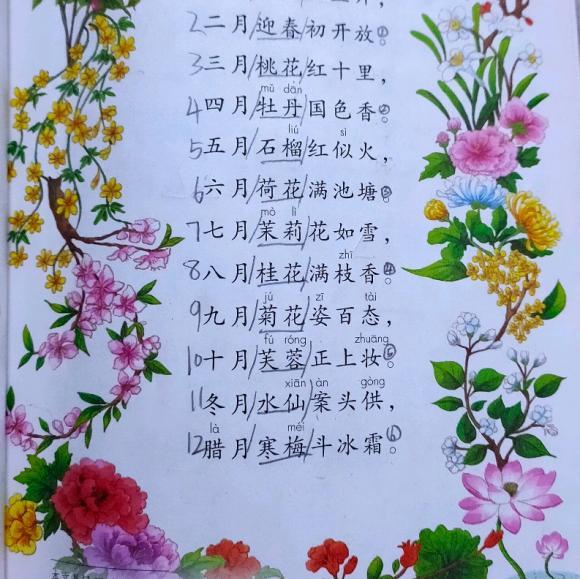 2二月迎春初开放。①
3三月桃花红十里，
mǔ dān
4四月牡丹国色香。②
liú sì
5五月石榴红似火，
6六月荷花满池塘。③
mò lì
7七月茉莉花如雪，
zhī
8八月桂花满枝香。④
jú zī tài
9九月菊花姿百态，
fú róng zhuāng
10十月芙蓉正上妆。⑤
xiān àn gòng
11冬月水仙案头供，
là méi
12腊月寒梅斗冰霜。⑥